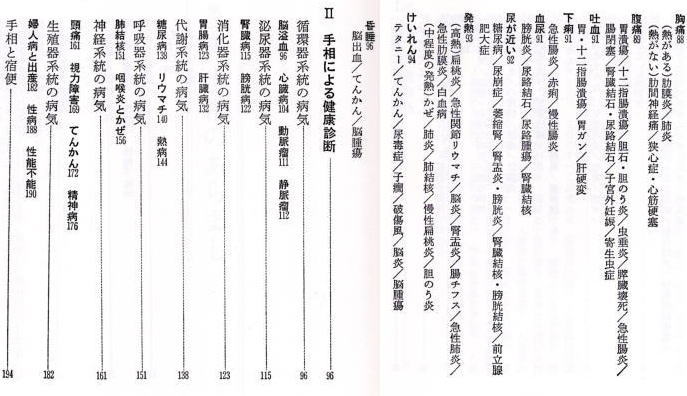 胸痛88
(熱がある)肋膜炎/肺炎
(熱がない)肋間神経痛/狭心症・心筋硬塞
腹痛89
胃潰瘍/十二指腸潰瘍/胆石・胆のう炎/虫垂炎/膵臓壊死/急性腸炎/
腸閉塞/腎臓結石・尿路結石/子宮外妊娠/寄生虫症
吐血91
胃・十二指腸潰瘍/胃ガン/肝硬変
下痢91
急性腸炎/赤痢/慢性腸炎
血尿91
膀胱炎/尿路結石/尿路腫瘍/腎臓結核
尿が近い92
糖尿病/尿崩症/萎縮腎/腎盂炎・膀胱炎/腎臓結核・膀胱結核/前立腺
肥大症
発熱93
(高熱)扁桃炎/急性関節リウマチ/脳炎/腎盂炎/腸チフス/急性肺炎/
急性肋膜炎/白血病
(中程度の発熱)かぜ/肺炎/肺結核/慢性扁桃炎/胆のう炎
けいれん94
テタニー/てんかん/尿毒症/子癇/破傷風/脳炎/脳腫瘍
昏睡96
脳出血/てんかん/脳腫瘍
Ⅱ 手相による健康診断 96
循環器系統の病気 96
脳溢血96 心臓病104 動脈瘤111 静脈瘤112
泌尿器系統の病気 115
腎臓病115 膀胱病122
消化器系統の病気 123
胃腸病123 肝臓病132
代謝系統の病気 138
糖尿病138 リウマチ140 熱病144
呼吸器系統の病気 151
肺結核151 咽喉炎とかぜ156
神経系統の病気 161
頭痛161 視力障害169 てんかん172 精神病176
生殖器系統の病気 182
婦人病と出産182 性病188 性能不能190
手相と宿便 194